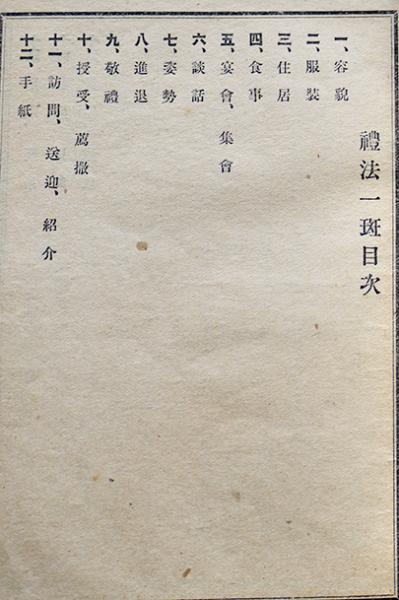 禮法一斑目次
一、容貌
二、服裝
三、住居
四、食事
五、宴會、集會
六、談話
七、姿勢
八、進退
九、敬禮
十、授受、薦撤
十一、訪問、送迎、紹介
十二、手紙